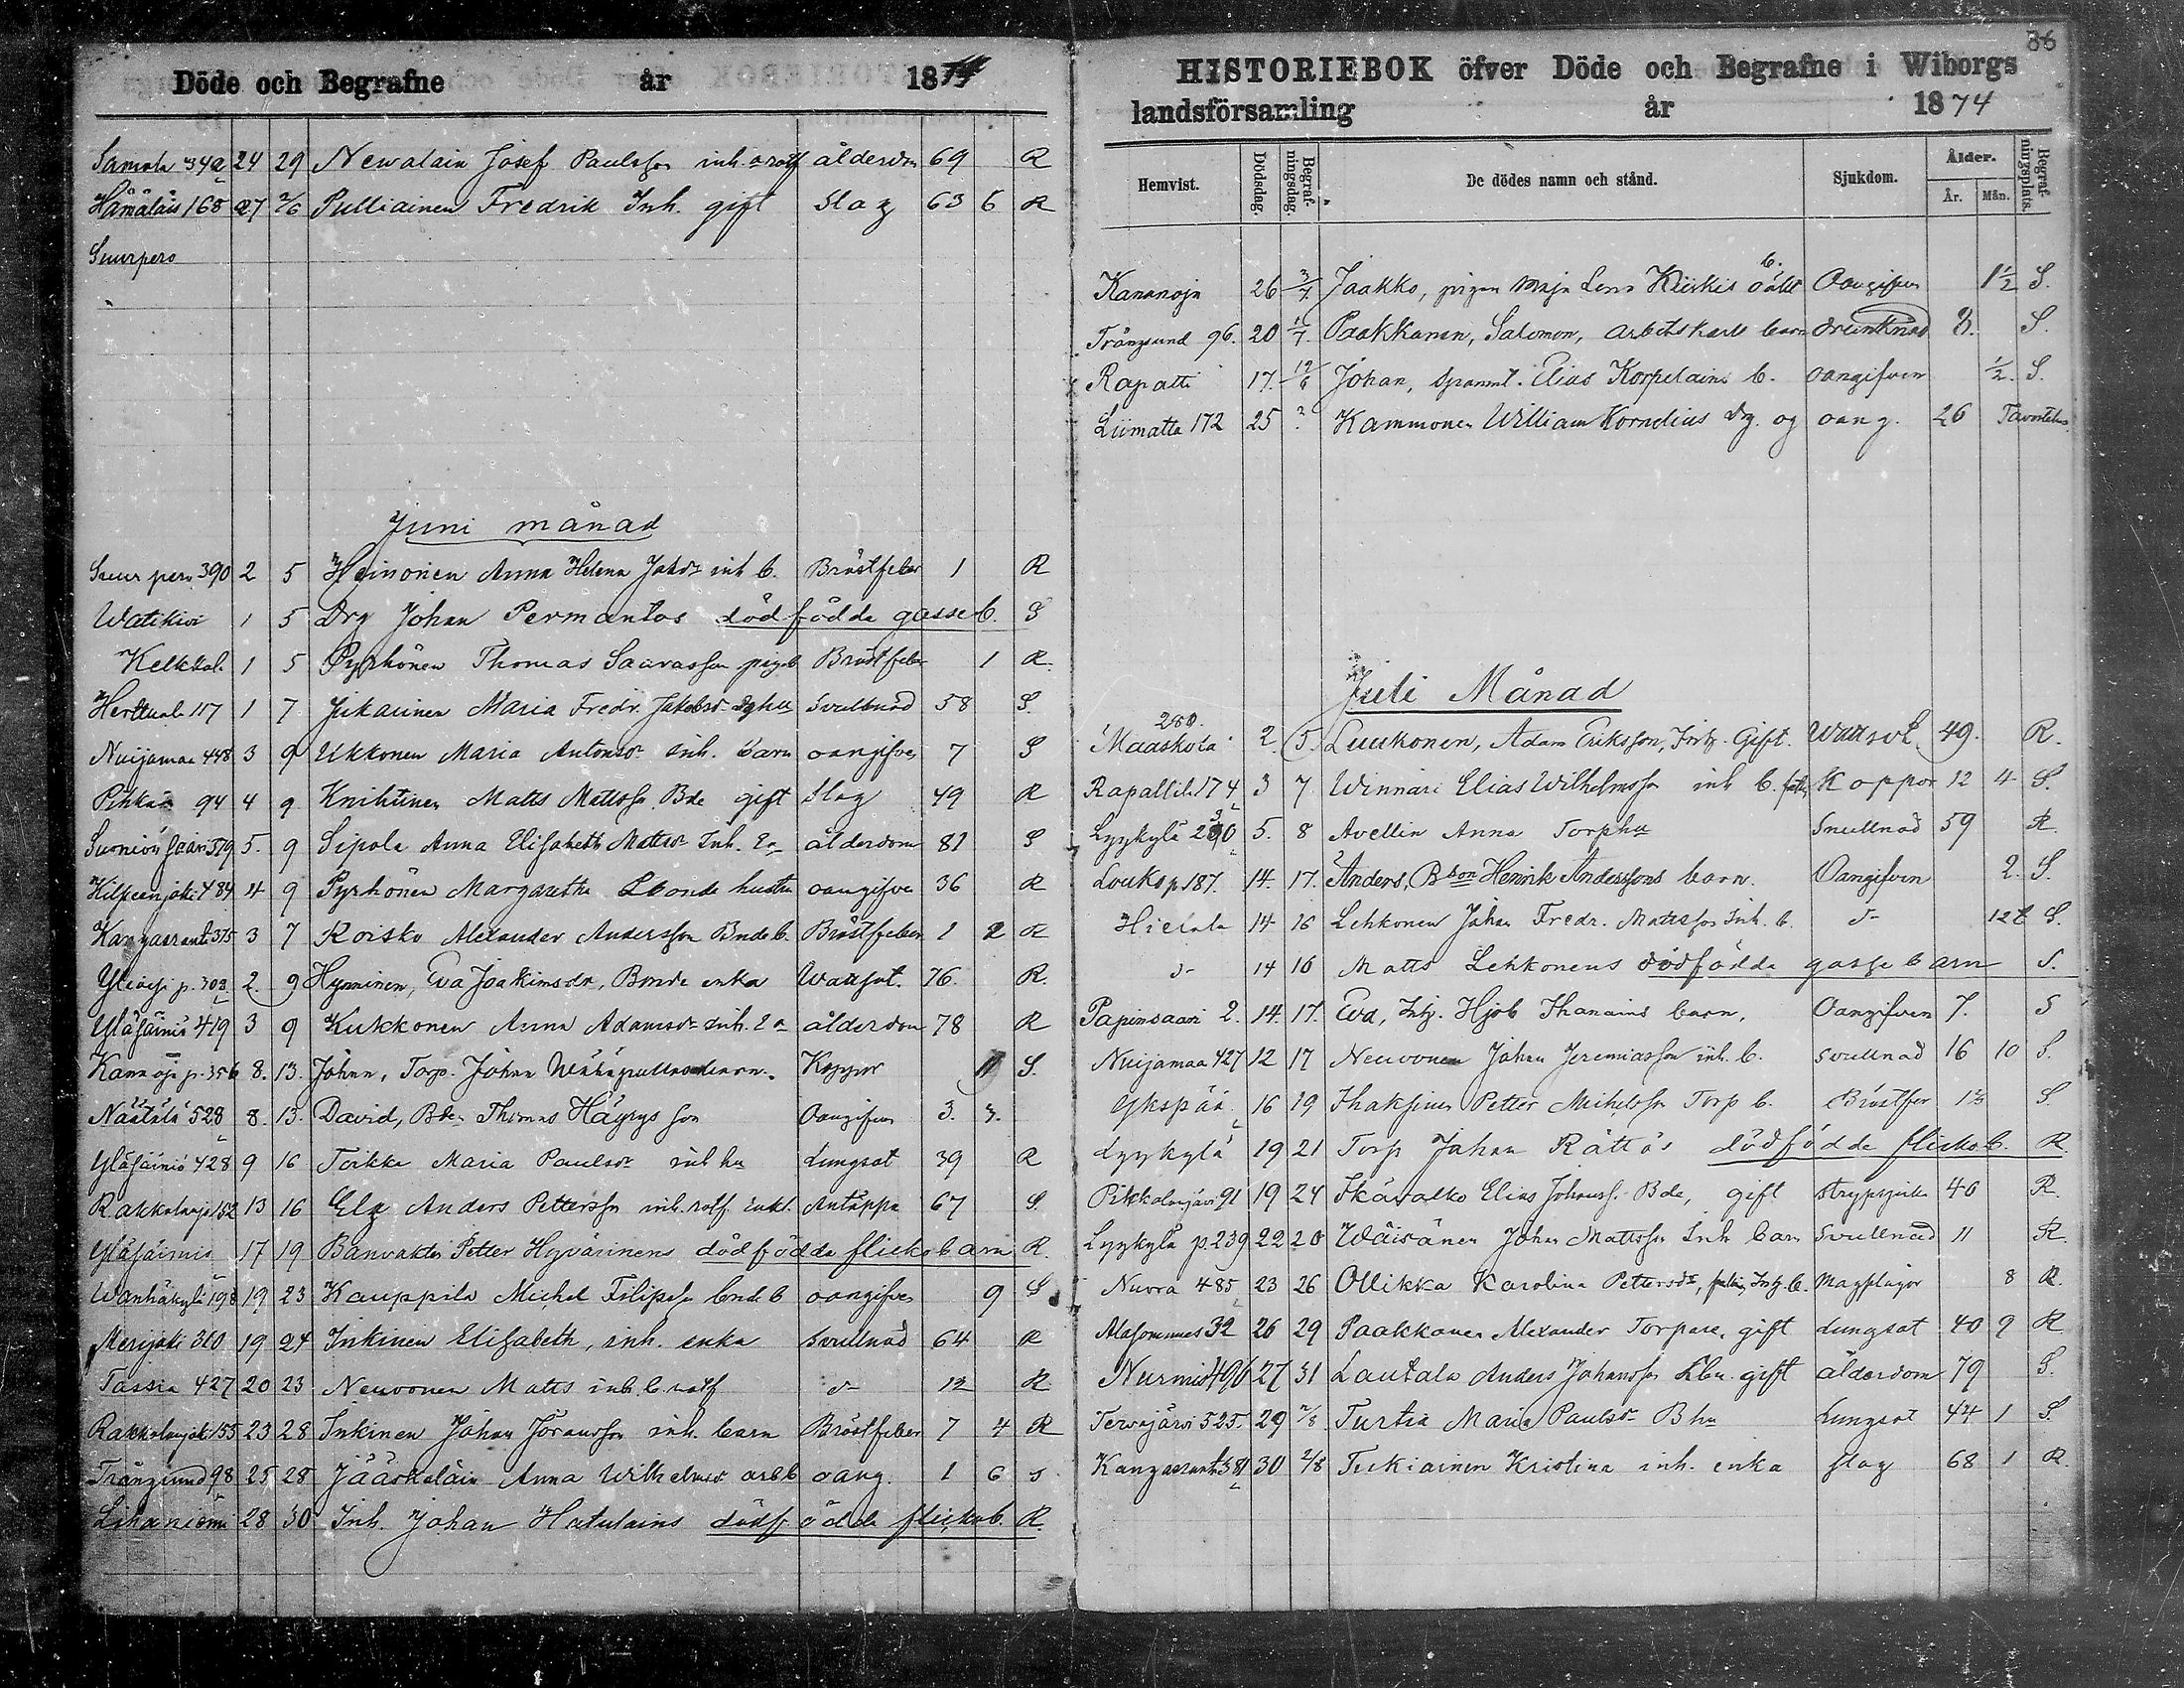 Döde och Begrafne år 1874
Samola 342 24 29 Newalain Josef Paulsson inh. rotf ålderdom 69 R
Hämäläis 165 27 2/6 Pulliainen Fredrik Inh. gift Slag 63 6 R
Suurpero
Juni månad
Suurpero 390 2 5 Heinonen Anna Helena Jakdr inh b. Bröstfeber 1 R
Watikivi 1 5 Drg Johan Permantos dödfödda gosseb. S
Kelkkal. 1 5 Pyrhönen Thomas Saavasson pigeb Bröstfeber 1 R.
Herttuala 117 1 7 Jukarinen Maria Fredr. Jakobsd Svullnad 58 S.
Nuijamaa 448 3 9 Ukkonen Maria Antonsdr inh. barn oangifven 7 S
Pihkar 94 4 9 Knihtinen Matts Mattss. Bde gift Slag 49 R
579 5. 9 Sipola Anna Elisabeth Mattsdr Inh. Ea ålderdom 81 S
Kilpeenjoki 484 4 9 Pyrhönen Margaretha Lbonde hustru oangifven 36 R
Kangasranta 375 3 7 Roisko Alexander Andersson Bnde b. Bröstfeber 1 2 R
p. 302 2. 9 Hynninen, Eva Joakimsdr, Bonde enka Wattsot. 76. R.
Yläsäiniö 419 3 9 Kukkonen Anna Adamsdr inh. Ea ålderdom 78 R
Kananoja p. 356 8. 13. Johan, Torp. Johan barn. Koppor 11 S.
Näätälä 528 8. 13. David, Bden Thomas Häyrys son Oangifven 3. 3.
Yläsäiniö 428 9 16 Toikka Maria Paulsdr inh hu Lungsot 39 R
Rakkolanjo 152 13 16 Elg Anders Pettersson inh. rotf. enkl. Andtäppa 67 S.
Yläsäiniö 17 19 Banvakten Petter Hyvärinens dödfödda flickobarn R.
Wanhakylä 198 19 23 Kauppila Michel Filipss bnde b oangifven 9 S
Merijoki 310 19 24 Inkinen Elisabeth, inh. enka Svullnad 64 R
Tassia 427 20 23 Neuvonen Matts inh. b. rotf d:o 12 R
Rakkolanjoki 155 23 28 Inkinen Johan Göransson inh. barn Bröstfeber 7 4 R
Trångsund 98 25 28 Jääskeläin Anna Wilhelmsd arb b oang. 1 6 S
Lihaniemi 28 30 Inh. Johan Hatulains dödfödda flickob. R.
86
HISTORIEBOK öfver Döde och Begrafne i Wiborgs
landsförsamling år 1874
Hemvist. Dödsdag. Begrafningsdag. De dödes namn och stånd. Sjukdom. Ålder. År. Mån. Begrafningsplats.
Kananoja 26 3/7. Jaakko, pigan Maja Lena Kiiskis oäkt b. Oangifven 1 1/2 S.
Trångsund 96. 20 1/7. Paakkanen, Salomon, arbetskarls barn drunknad 8. S.
Rapatti 17. 19/6 Johan, Spannml. Elias Korpelains b. oangifven 1/2. S.
Liimatta 172 25 ? Kammonen William Kornelius Drg. og oang. 26 Tavastehus
Juli Månad
Maaskola 280. 2. 5. Luukonen, Adam Eriksson, Inhy. Gift. Wattsot 49. R.
Rapattila 174 3 7 Winnari Elias Wilhelmsson inh b. Koppor 12 4 S.
Lyykylä 230 5. 8 Avellin Anna Torphu Svullnad 59 R
Loukop 187. 14. 17. Anders, Bbon Henrik Anderssons barn. Oangifven 2. S.
Hietala 14 16 Lehkonen Johan Fredr. Mattsson Inh. b. d:o 12t S.
d:o 14 16 Matts Lehkonens dödfödda gossebarn S.
Papinsaari 2. 14. 17. Eva, Inhy. Hjob Ihanains barn. Oangifven 7. S
Nuijamaa 427 12 17 Neuvonen Johan Jeremiasson inh. b. svullnad 16 10 S.
Ykspää 16 19 Ihaksinen Petter Mikelsson Torp b. Bröstfeber S.
Lyykylä 19 21 Torp Johan Rättös dödfödda flickob. R.
Pikkalanjärvi 91 19 24 Skävalko Elias Johanss. Bde, gift strypsjuka 46 R.
Lyykylä p. 239 22 26 Wäisänen Johan Mattsson Inh barn Svullnad 11 R.
Nuora 485 23 26 Ollikka Karolina Pettersdr, fattig Inhy. b. Magplågor 8 R.
Alasommes 32 26 29 Paakkanen Alexander Torpare, gift Lungsot 40 9 R
Nurmis 496 27 31 Lautala Anders Johansson Lbn. gift ålderdom 79 S.
Tervajärvi 525. 29 2/8 Turtia Maria Paulsdr B hu Lungsot 44 1 S.
Kangasranta 381 30 2/8 Tukiainen Kristina inh. enka slag 68 1 R.